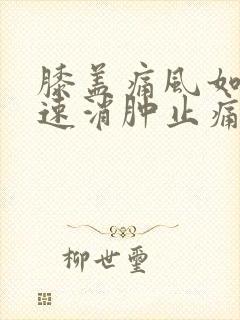 膝盖痛风如
速消肿止痛
柳世玺